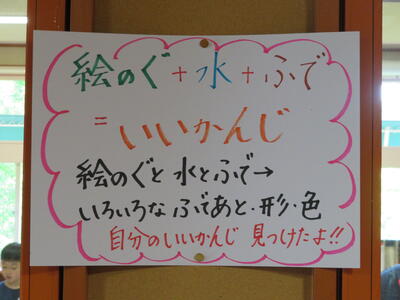 絵のぐ+水+ふで
=いいかんじ
絵のぐと水とふで→
いろいろなふであと・形・色
自分のいいかんじ 見つけたよ!!